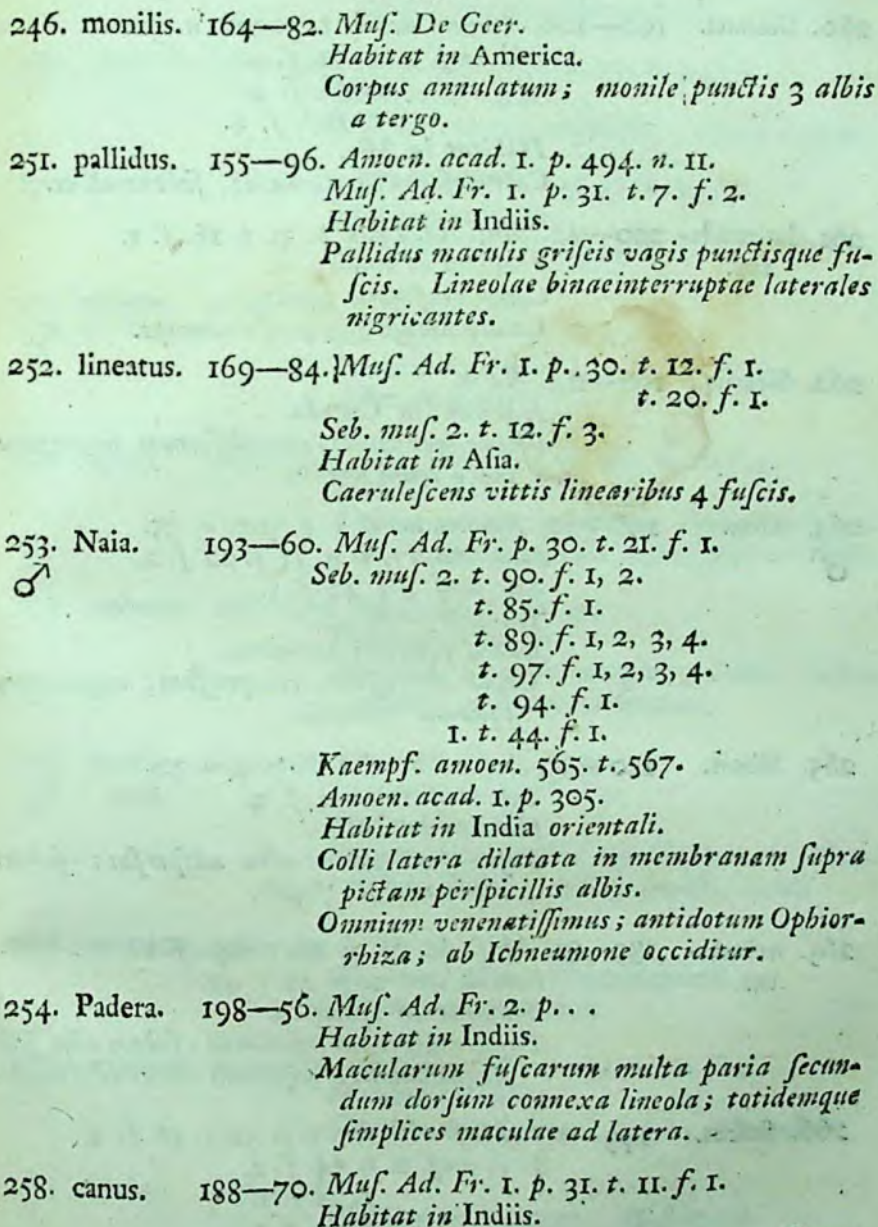 246. monilis. 164—82. Muſ. De Geer.
Habitat in America.
Corpus annulatum; monile punctis 3 albis
a tergo.
251. pallidus. 155—96. Amoen. acad. 1. p. 494. n. 11.
Muſ. Ad. Fr. 1. p. 31. t. 7. f. 2.
Habitat in Indiis.
Pallidus maculis griſeis vagis punctisque fu-
ſcis. Lineolae binae interruptae laterales
nigricantes.
252. lineatus. 169—84. Muſ. Ad. Fr. 1. p. 30. t. 12. f. 1.
t. 20. f. 1.
Seb. muſ. 2. t. 12. f. 3.
Habitat in Aſia.
Caeruleſcens vittis linearibus 4 fuſcis.
253. Naia. 193—60. Muſ. Ad. Fr. p. 30. t. 21. f. 1.
♂ Seb. muſ. 2. t. 90. f. 1, 2.
t. 85. f. 1.
t. 89. f. 1, 2, 3, 4.
t. 97. f. 1, 2, 3, 4.
t. 94. f. 1.
1. t. 44. f. 1.
Kaempf. amoen. 565. t. 567.
Amoen. acad. 1. p. 305.
Habitat in India orientali.
Colli latera dilatata in membranam ſupra
pictam perſpicillis albis.
Omnium venenatiſſimus; antidotum Ophior-
rhiza; ab Ichneumone occiditur.
254. Padera. 198—56. Muſ. Ad. Fr. 2. p. . .
Habitat in Indiis.
Macularum fuſcarum multa paria ſecun-
dum dorſum connexa lineola; totidemque
ſimplices maculae ad latera.
258. canus. 188—70. Muſ. Ad. Fr. 1. p. 31. t. 11. f. 1.
Habitat in Indiis.